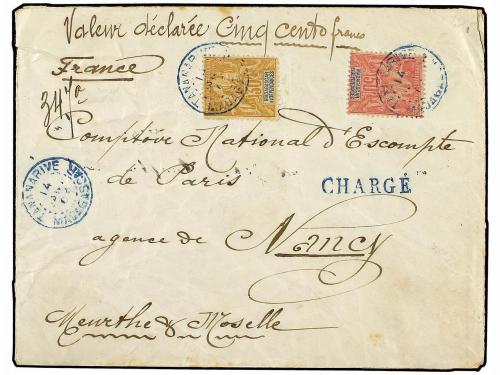 Valeur déclarée Cinq cents francs
France
Comptoir National d'Escompte
de Paris
CHARGÉ
TANANARIVE MADAGASCAR
14
agence de Nancy
Meurthe & Moselle